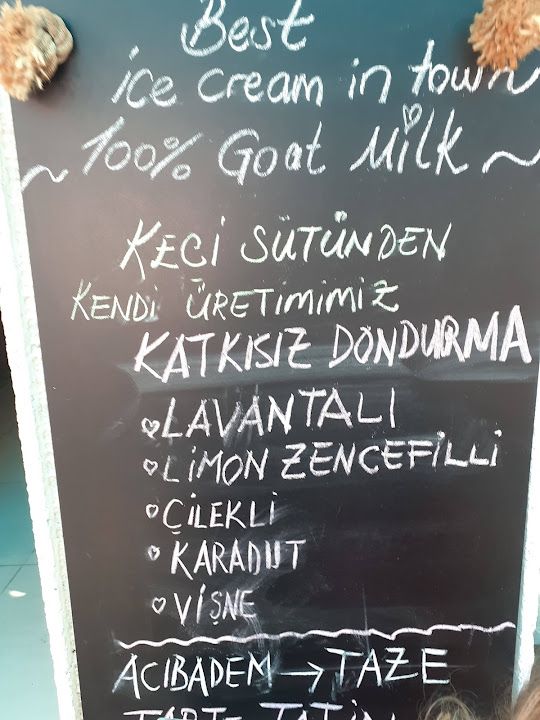 Best
ice cream in town
~ 100% Goat Milk ~
KECİ SÜTÜNDEN
KENDİ ÜRETİMİMİZ
KATKISIZ DONDURMA
LAVANTALI
LİMON ZENCEFİLLİ
ÇİLEKLİ
KARADUT
VİŞNE
ACIBADEM → TAZE